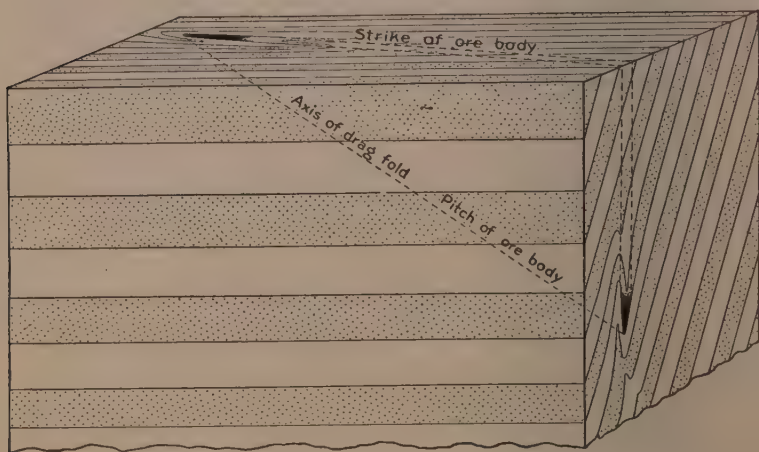 Strike of ore body
Axis of drag fold
Pitch of ore body